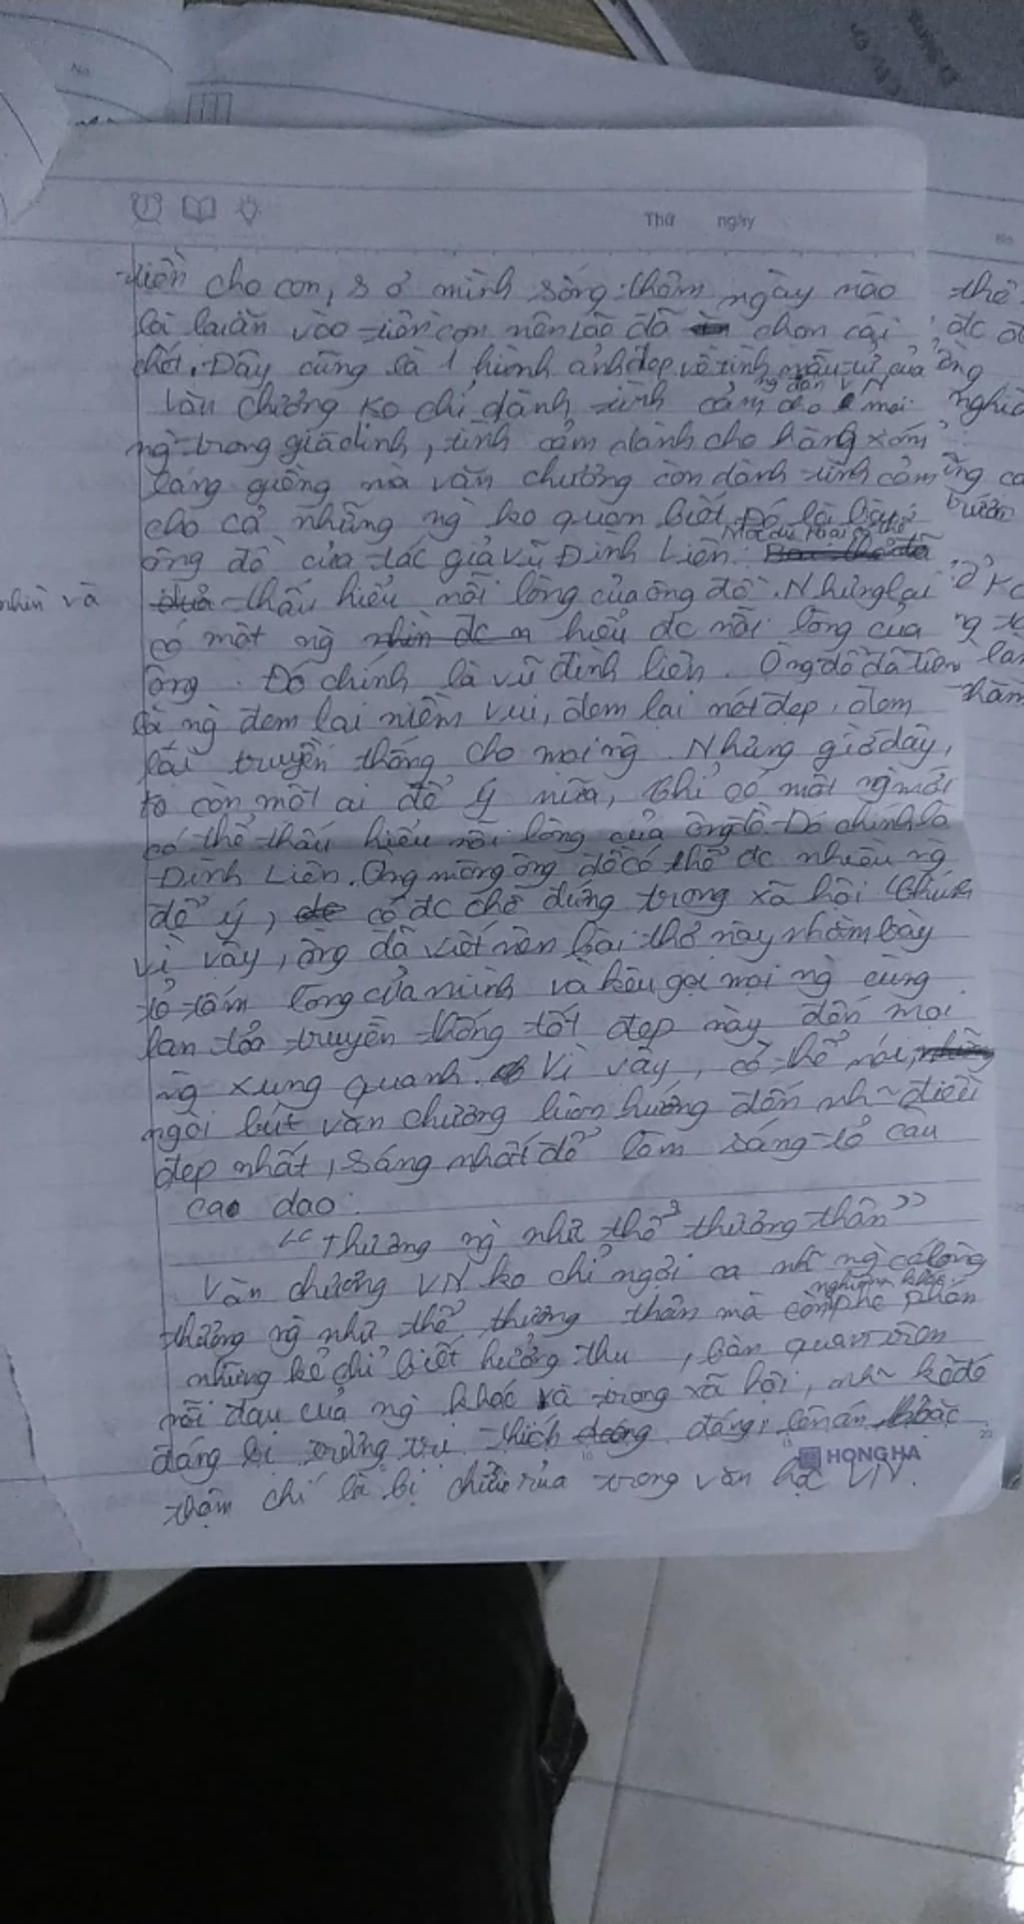 Thứ ngày
tiền cho con, s ở mình sống thêm ngày nào
lại lại ăn vào tiền con nên lão đã chọn cái
chết. Đây cũng là 1 hình ảnh đẹp về tình mẫu tử của
Văn chương ko chỉ dành tình cảm cho mọi
ng trong gia đình, tình cảm dành cho hàng xóm
láng giềng mà văn chương còn dành tình cảm
cho cả những ng ko quen biết. Đó là bài
ông đồ của tác giả Vũ Đình Liên.
nhìn và thấu hiểu nỗi lòng của ông đồ. Nhưng lại
có một ng hiểu đc nỗi lòng của
ông. Đó chính là vũ đình liên. Ông đồ đã
là ng đem lại niềm vui, đem lại nét đẹp, đem
lại truyền thống cho mọi ng. Nhưng giờ đây,
ko còn một ai để ý nữa, chỉ có một ng mới
có thể thấu hiểu nỗi lòng của ông đồ. Đó chính là
Đình Liên. Ông mong ông đồ có thể đc nhiều ng
để ý, có đc chỗ đứng trong xã hội. Chính
vì vậy, ông đã viết nên bài thơ này nhằm bày
tỏ tấm lòng của mình và kêu gọi mọi ng cùng
lan tỏa truyền thống tốt đẹp này đến mọi
ng xung quanh. Vì vậy, có thể nói,
ngòi bút văn chương luôn hướng đến nh~ điều
đẹp nhất, sáng nhất để làm sáng tỏ câu
cao dao:
"Thương ng như thể thương thân"
Văn chương VN ko chỉ ngợi ca nh~ ng có lòng
nghiêm khắc
thương ng như thể thương thân mà còn phê phán
những kẻ chỉ biết hưởng thụ, bàn quan trên
nỗi đau của ng khác và trong xã hội, nh~ kẻ đó
đáng bị trừng trị thích đáng, lên án hoặc
thậm chí là bị chửi rủa trong văn học VN.
HONG HA